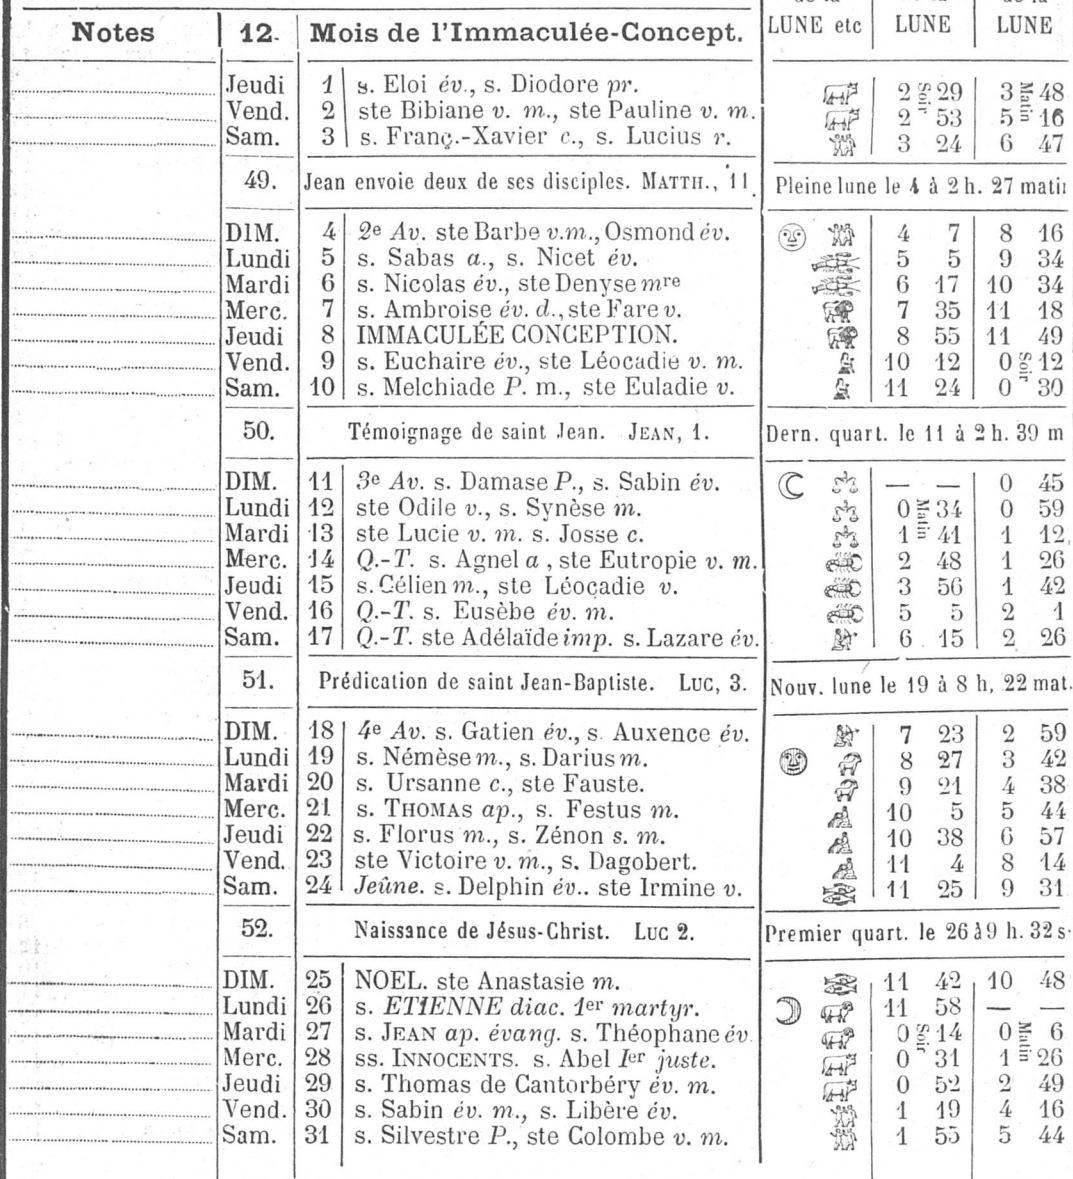 de la de la de la
Notes 12. Mois de l'Immaculée-Concept. LUNE etc LUNE LUNE
Jeudi 1 s. Eloi év., s. Diodore pr. 2 Soir 29 3 Matin 48
Vend. 2 ste Bibiane v. m., ste Pauline v. m. 2 53 5 16
Sam. 3 s. Franç.-Xavier c., s. Lucius r. 3 24 6 47
49. Jean envoie deux de ses disciples. MATTH., 11. Pleine lune le 4 à 2 h. 27 matin
DIM. 4 2e Av. ste Barbe v.m., Osmond év. 4 7 8 16
Lundi 5 s. Sabas a., s. Nicet év. 5 5 9 34
Mardi 6 s. Nicolas év., ste Denyse mre 6 17 10 34
Merc. 7 s. Ambroise év. d., ste Fare v. 7 35 11 18
Jeudi 8 IMMACULÉE CONCEPTION. 8 55 11 49
Vend. 9 s. Euchaire év., ste Léocadie v. m. 10 12 0 Soir 12
Sam. 10 s. Melchiade P. m., ste Euladie v. 11 24 0 30
50. Témoignage de saint Jean. JEAN, 1. Dern. quart. le 11 à 2 h. 39 m
DIM. 11 3e Av. s. Damase P., s. Sabin év. — — 0 45
Lundi 12 ste Odile v., s. Synèse m. 0 Matin 34 0 59
Mardi 13 ste Lucie v. m. s. Josse c. 1 41 1 12
Merc. 14 Q.-T. s. Agnel a , ste Eutropie v. m. 2 48 1 26
Jeudi 15 s. Célien m., ste Léocadie v. 3 56 1 42
Vend. 16 Q.-T. s. Eusèbe év. m. 5 5 2 1
Sam. 17 Q.-T. ste Adélaïde imp. s. Lazare év. 6 15 2 26
51. Prédication de saint Jean-Baptiste. LUC, 3. Nouv. lune le 19 à 8 h, 22 mat.
DIM. 18 4e Av. s. Gatien év., s. Auxence év. 7 23 2 59
Lundi 19 s. Némèse m., s. Darius m. 8 27 3 42
Mardi 20 s. Ursanne c., ste Fauste. 9 21 4 38
Merc. 21 s. THOMAS ap., s. Festus m. 10 5 5 44
Jeudi 22 s. Florus m., s. Zénon s. m. 10 38 6 57
Vend. 23 ste Victoire v. m., s. Dagobert. 11 4 8 14
Sam. 24 Jeûne. s. Delphin év.. ste Irmine v. 11 25 9 31
52. Naissance de Jésus-Christ. LUC 2. Premier quart. le 26 à 9 h. 32 s.
DIM. 25 NOEL. ste Anastasie m. 11 42 10 48
Lundi 26 s. ETIENNE diac. 1er martyr. 11 58 — —
Mardi 27 s. JEAN ap. évang. s. Théophane év. 0 Soir 14 0 Matin 6
Merc. 28 ss. INNOCENTS. s. Abel Ier juste. 0 31 1 26
Jeudi 29 s. Thomas de Cantorbéry év. m. 0 52 2 49
Vend. 30 s. Sabin év. m., s. Libère év. 1 19 4 16
Sam. 31 s. Silvestre P., ste Colombe v. m. 1 55 5 44